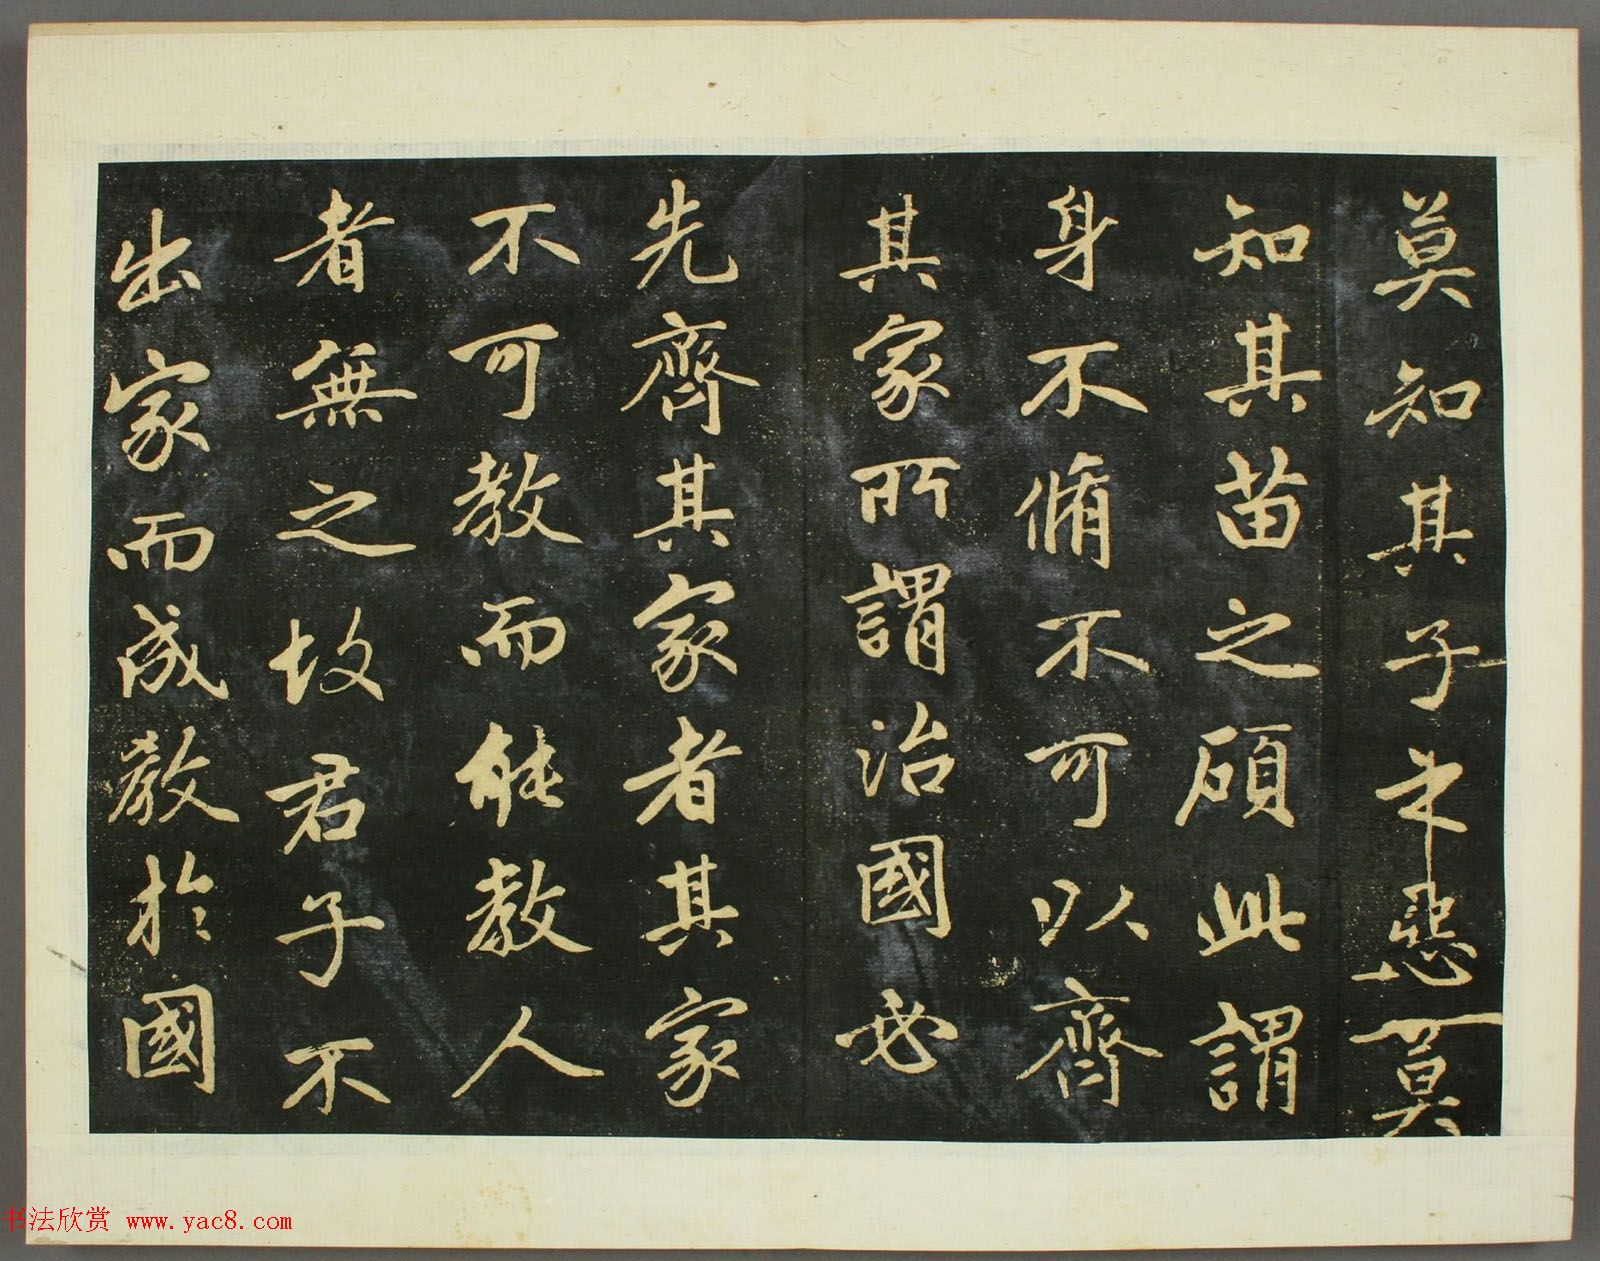 莫知其子之惡莫
知其苗之碩此謂
身不脩不可以齊
其家所謂治國必
先齊其家者其家
不可教而能教人
者無之故君子不
出家而成教於國
书法欣赏 www.yac8.com